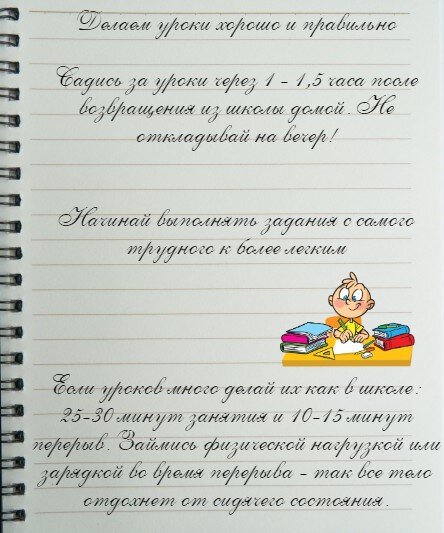 Делаем уроки хорошо и правильно
Садись за уроки через 1 - 1,5 часа после
возвращения из школы домой. Не
откладывай на вечер!
Начинай выполнять задания с самого
трудного к более легким
Если уроков много делай их как в школе:
25-30 минут занятия и 10-15 минут
перерыв. Займись физической нагрузкой или
зарядкой во время перерыва - так все тело
отдохнет от сидячего состояния.